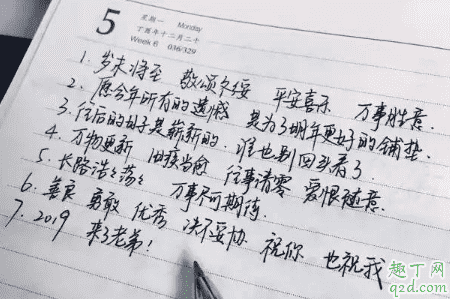 5
星期一 Monday
丁酉年十二月二十
Week 6 036/329
1. 岁末将至 敬颂冬绥 平安喜乐 万事胜意.
2. 愿今年所有的遗憾 是为了明年更好的铺垫.
3. 往后的日子是崭新的. 谁也别回头看了.
4. 万物更新 旧疾当愈 往事清零 爱恨随意.
5. 长路浩浩荡荡 万事尽可期待.
6. 善良 勇敢 优秀 决不妥协 祝你 也祝我
7. 2019 来了老弟!
趣丁网
q2d.com